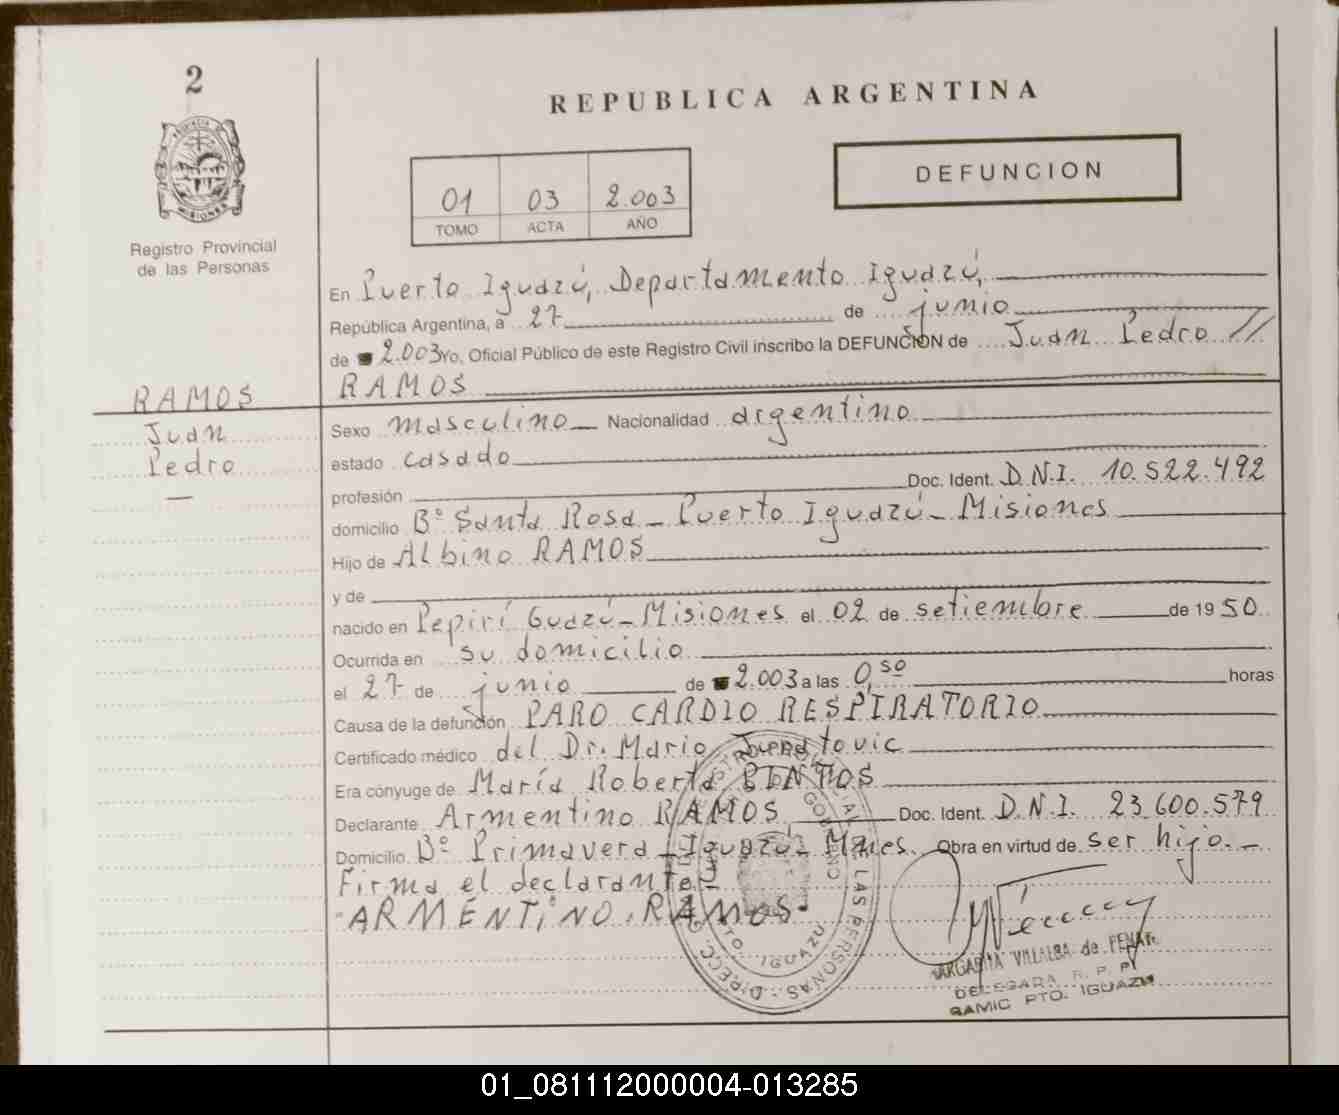 2
REPUBLICA ARGENTINA
PROVINCIA D
MISIONES
Registro Provincial
de las Personas
01 03 2.003
TOMO ACTA AÑO
DEFUNCION
En Puerto Iguazú, Departamento Iguazú,
República Argentina, a 27 de junio
de 2.003 Yo, Oficial Público de este Registro Civil inscribo la DEFUNCION de Juan Pedro //
RAMOS
RAMOS
Juan
Pedro
—
Sexo masculino Nacionalidad argentino
estado casado
profesión Doc. Ident. D.N.I. 10.522.492
domicilio Bº Santa Rosa - Puerto Iguazú - Misiones
Hijo de Albino RAMOS
y de
nacido en Pepirí Guazú - Misiones el 02 de setiembre de 1950
Ocurrida en su domicilio
el 27 de junio de 2.003 a las 0,50 horas
Causa de la defunción PARO CARDIO RESPIRATORIO
Certificado médico del Dr. Mario
Era cónyuge de María Roberta BINTOS
Declarante Armentino RAMOS Doc. Ident. D.N.I. 23.600.579
Domicilio Bº Primavera - Iguazú - Mnes. Obra en virtud de ser hijo. -
Firma el declarante -
ARMENTINO RAMOS
DE LAS PERSONAS - DIRECC.
PTO. IGUAZU
MARGARITA VILLALBA de
DELEGADA R. P. P.
RAMIC PTO. IGUAZU
01_081112000004-013285